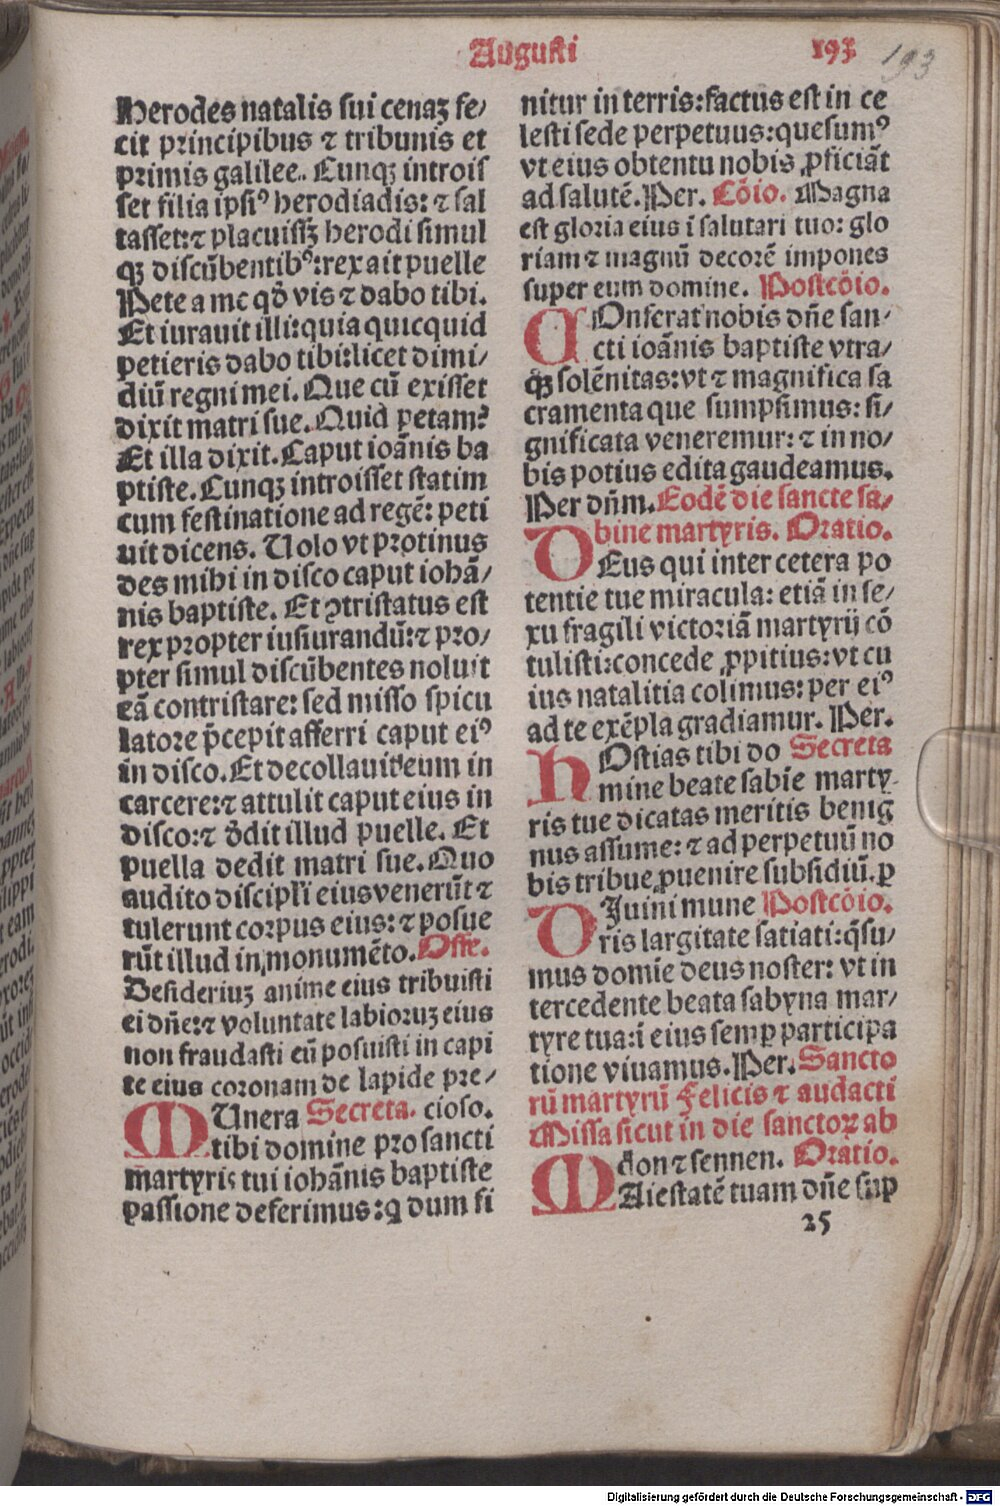 Augusti
193.
193
Herodes natalis sui cenaꝫ fe/
cit principibus ⁊ tribunis et
primis galilee. Cunqꝫ introis
set filia ipsiꝰ herodiadis: ⁊ sal
tasset:⁊ placuissꝫ herodi simul
qꝫ discūbentibꝰ:rex ait puelle
Pete a me qđ vis ⁊ dabo tibi.
Et iurauit illi:quia quicquid
petieris dabo tibi:licet dimi/
diū regni mei. Que cū exisset
dixit matri sue. Quid petam?
Et illa dixit. Caput ioānis ba
ptiste. Cunqꝫ introisset statim
cum festinatione ad regē: peti
uit dicens. Uolo vt protinus
des mihi in disco caput iohā/
nis baptiste. Et ꝯtristatus est
rex propter iusiurandū:⁊ pro/
pter simul discūbentes noluit
eā contristare: sed misso spicu
latore p̄cepit afferri caput eiꝰ
in disco. Et decollauit eum in
carcere:⁊ attulit caput eius in
disco:⁊ đdit illud puelle. Et
puella dedit matri sue. Quo
audito discipl̄i eius venerūt ⁊
tulerunt corpus eius: ⁊ posue
rūt illud in monumēto. Offe.
Desideriuꝫ anime eius tribuisti
ei dn̄e:⁊ voluntate labioruꝫ eius
non fraudasti eū posuisti in capi
te eius coronam de lapide pre/
MUnera Secreta. cioso.
tibi domine pro sancti
martyris tui iohānis baptiste
passione deferimus: q dum fi
nitur in terris:factus est in ce
lesti sede perpetuus:quesumꝰ
vt eius obtentu nobis ꝓficiāt
ad salutē. Per. Cōio. Magna
est gloria eius ī salutari tuo: glo
riam ⁊ magnū decorē impones
super eum domine. Postcōio.
COnferat nobis dn̄e san-
cti ioānis baptiste vtra/
qꝫ solēnitas:vt ⁊ magnifica sa
cramenta que sumpsimus: si/
gnificata veneremur: ⁊ in no/
bis potius edita gaudeamus.
Per dn̄m. Eodē die sancte sa/
bine martyris. Oratio.
DEus qui inter cetera po
tentie tue miracula: etiā in se/
xu fragili victoriā martyrij cō
tulisti:concede ꝓpitius:vt cu
ius natalitia colimus: per eiꝰ
ad te exēpla gradiamur. Per.
HOstias tibi do Secreta
mine beate sabīe marty-
ris tue dicatas meritis benig
nus assume: ⁊ ad perpetuū no
bis tribue ꝓuenire subsidiū. ꝑ
DJuini mune Postcōio.
ris largitate satiati:q̄su/
mus domīe deus noster: vt in
tercedente beata sabyna mar/
tyre tua:ī eius semꝑ participa
tione viuamus. Per. Sancto
rū martyrū Felicis ⁊ audacti
Missa sicut in die sanctoꝝ ab
don ⁊ sennen. Oratio.
MAiestatē tuam dn̄e sup
25
Digitalisierung gefördert durch die Deutsche Forschungsgemeinschaft - DFG